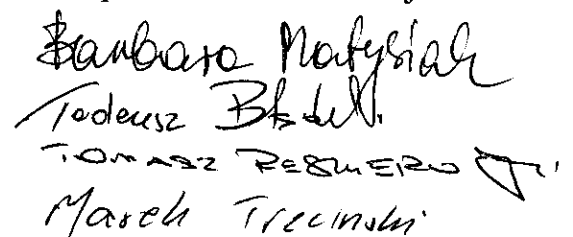 Barbara Matysiak
Tadeusz
TOMASZ
Marek Treciński